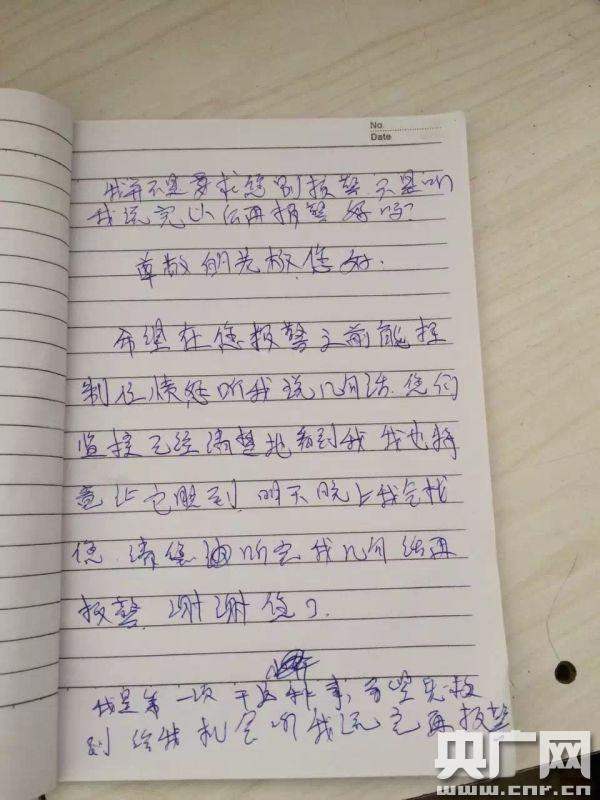 No.
Date
我并不是要求您别报警 只是听
我说完以后再报警好吗?
尊敬的老板您好.
希望在您报警之前能控
制住情绪听我说几句话.您们
监控已经清楚地看到我 我也特
意让它照到.明天晚上我会找
您.请您听完我几句话再
报警.谢谢您了.
我是第一次干这种事,希望老板
给我机会听我说完再报警
央广网
www.cnr.cn